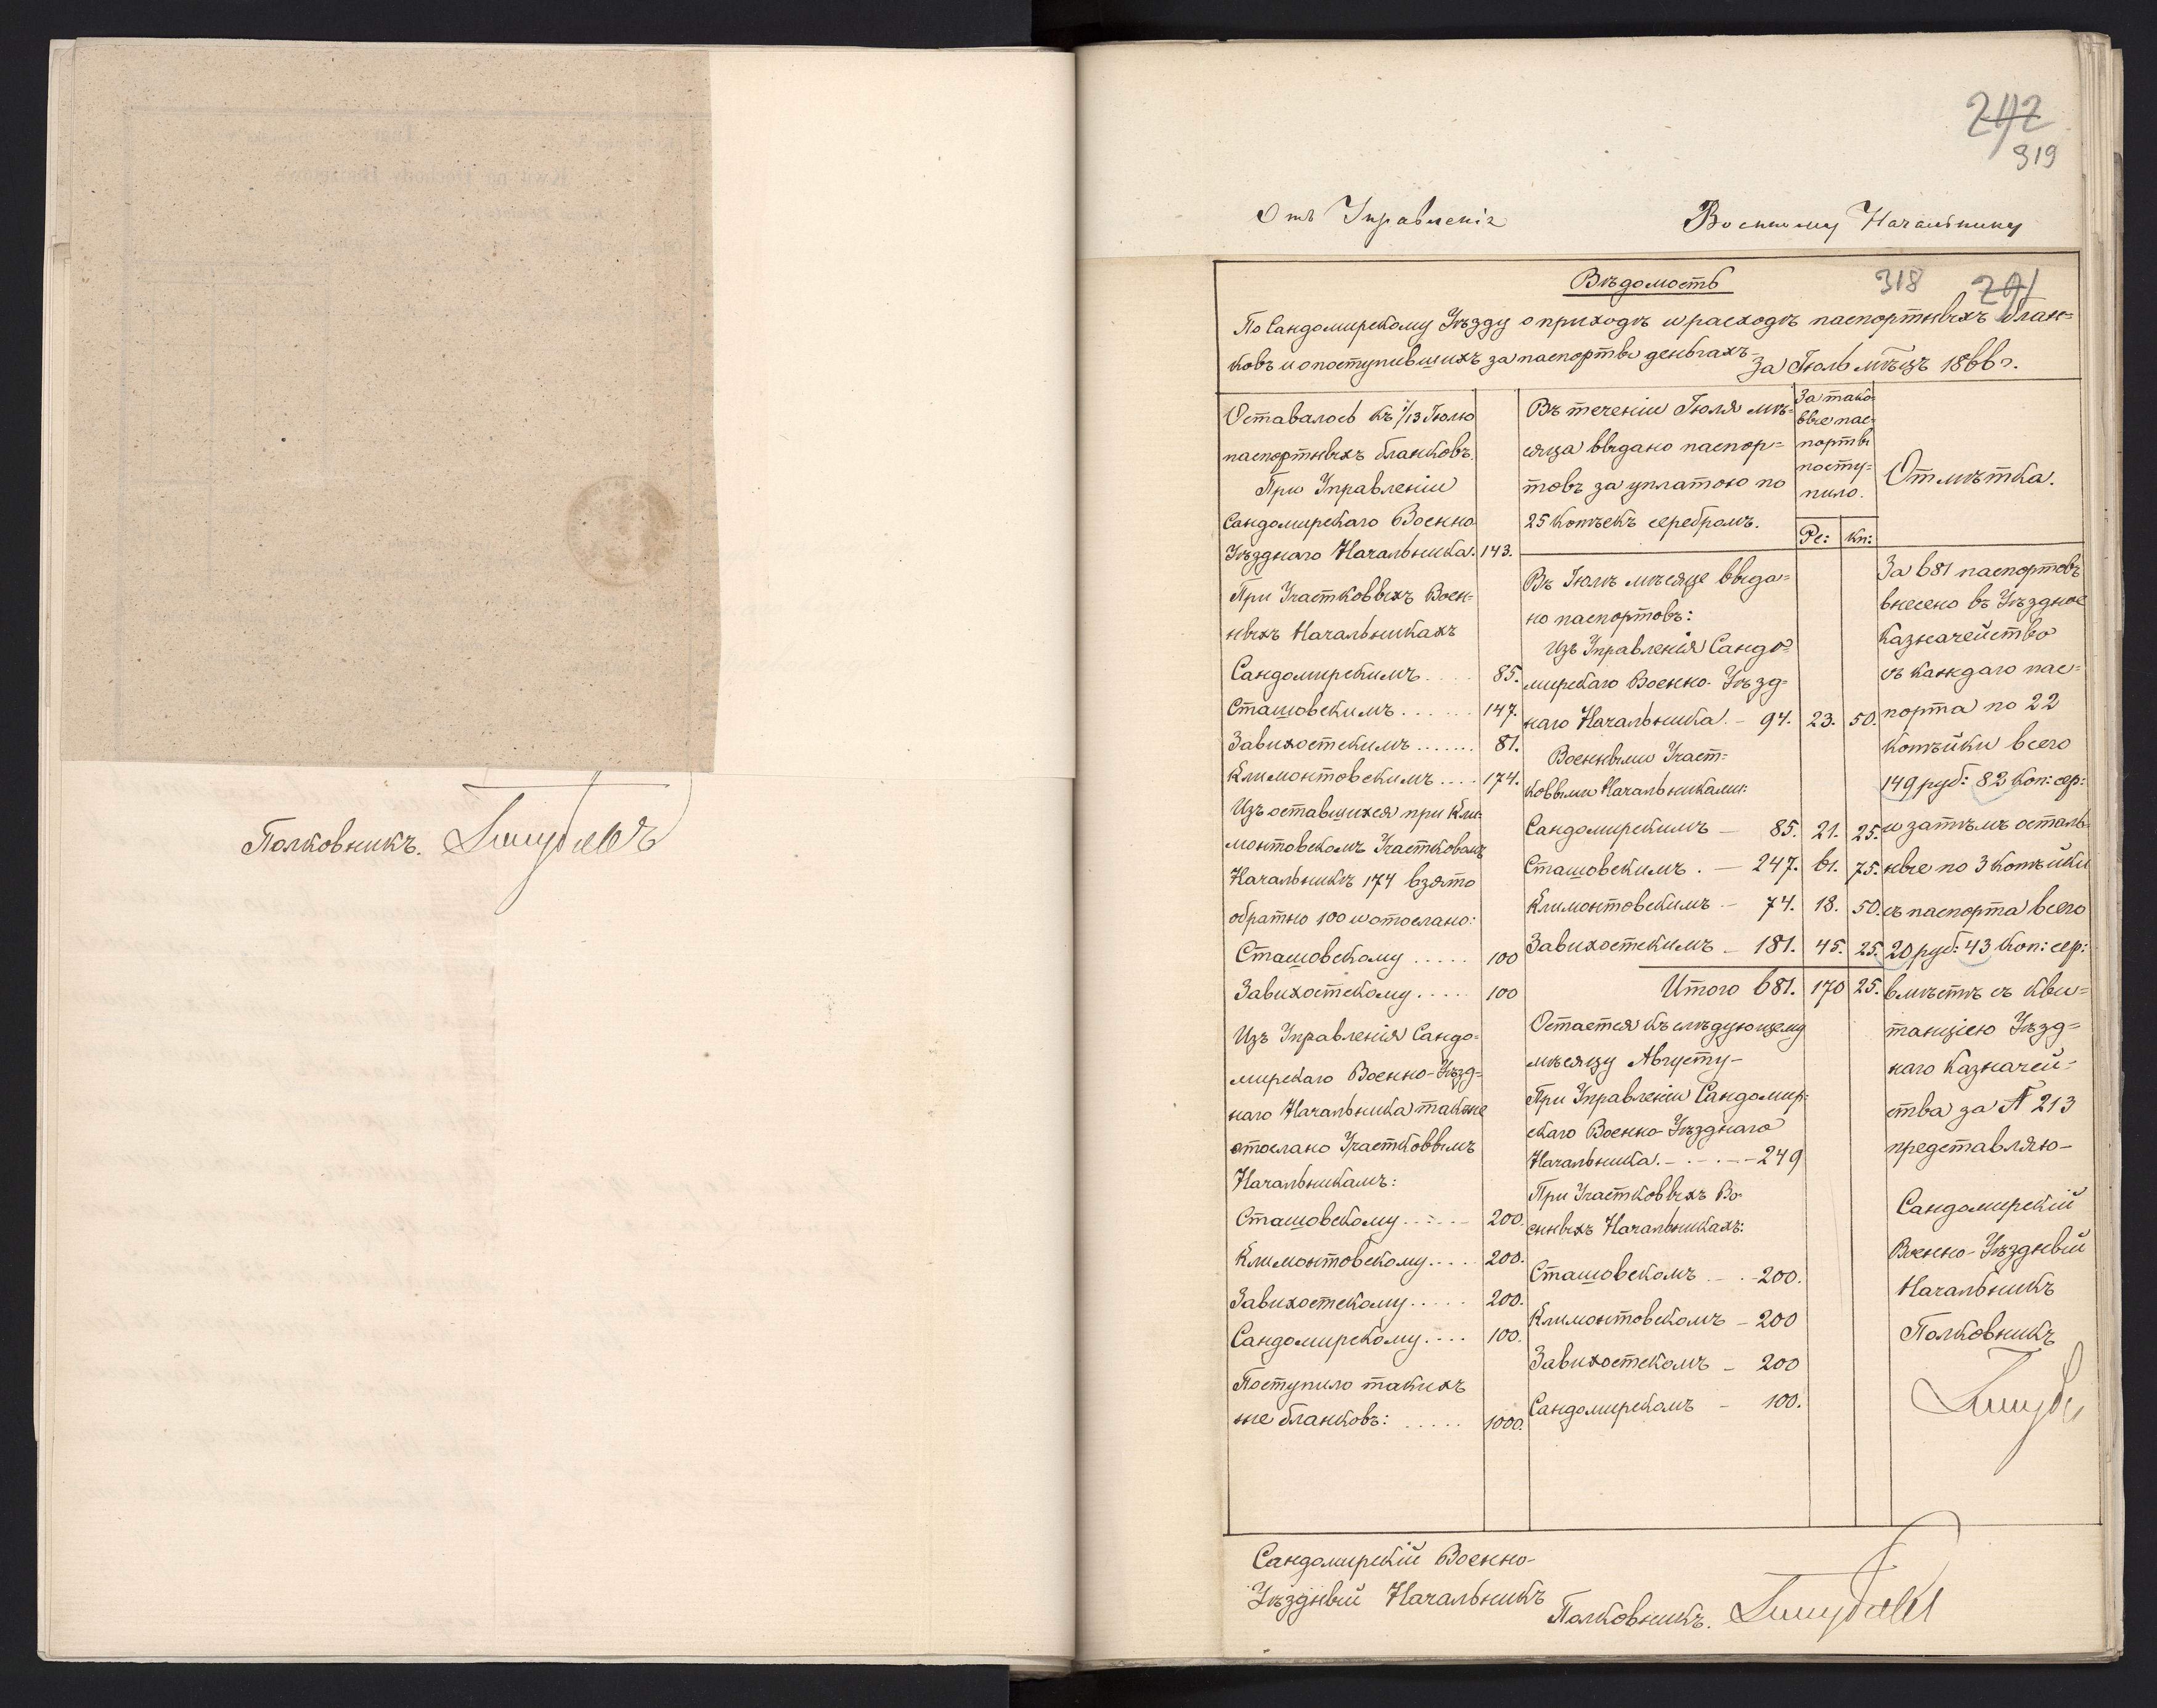 Полковникъ.
242
319
Отъ Управленія
Военному Начальнику
Вѣдомость
318 291
По Сандомирскому Уѣзду о приходѣ и расходѣ паспортныхъ блан=
ковъ и о поступившихъ за паспорты деньгахъ за Іюль мѣсяцъ 1866 г.
Оставалось къ 1/13 Іюлю
паспортныхъ бланковъ.
При Управленіи
Сандомирскаго Военно
Уѣзднаго Начальника. 143.
При Участковыхъ Воен=
ныхъ Начальникахъ
Сандомирскимъ .... 85.
Сташовскимъ ...... 147.
Завихостскимъ ....... 81.
Климонтовскимъ .... 174.
Изъ оставшихся при Кли=
монтовскомъ Участковомъ
Начальникѣ 174 взято
обратно 100 и отослано:
Сташовскому ..... 100
Завихостскому ..... 100
Изъ Управленія Сандо=
мирскаго Военно-Уѣзд=
наго Начальника также
отослано Участковымъ
Начальникамъ:
Сташовскому ..... 200.
Климонтовскому .... 200.
Завихостскому ..... 200.
Сандомирскому .... 100.
Поступило такихъ
же бланковъ: ..... 1000.
Въ теченіи Іюля мѣ=
сяца выдано паспор=
товъ за уплатою по
25 копѣекъ серебромъ.
Въ Іюлѣ мѣсяце выда=
но паспортовъ:
Изъ Управленія Сандо=
мирскаго Военно-Уѣзд=
наго Начальника. – 94. 23. 50.
Военными Участ=
ковыми Начальниками:
Сандомирскимъ – 85. 21. 25.
Сташовскимъ. – 247. 61. 75.
Климонтовскимъ – 74. 18. 50.
Завихостскимъ – 181. 45. 25.
Итого 681. 170 25.
Остается къ слѣдующему
мѣсяцу Августу –
При Управленіи Сандомир=
скаго Военно-Уѣзднаго
Начальника. – . – . – – 249
При Участковыхъ Во=
енныхъ Начальникахъ:
Сташовскомъ – . – 200.
Климонтовскомъ – 200
Завихостскомъ – 200
Сандомирскомъ – 100.
За тако=
вые пас=
порты
посту=
пило.
Рс: Кп:
Отмѣтка.
За 681 паспортовъ
внесено въ Уѣздное
Казначейство
съ каждаго пас=
порта по 22
копѣйки всего
149 руб: 82 коп: сер:
и затѣмъ осталь=
ные по 3 копѣйки
съ паспорта всего
20 руб: 43 коп: сер:
вмѣстѣ съ кви=
танціею Уѣзд=
наго Казначей=
ства за № 213
представляю –
Сандомирскій
Военно-Уѣздный
Начальникъ
Полковникъ
Сандомирскій Военно-
Уѣздный Начальникъ
Полковникъ.